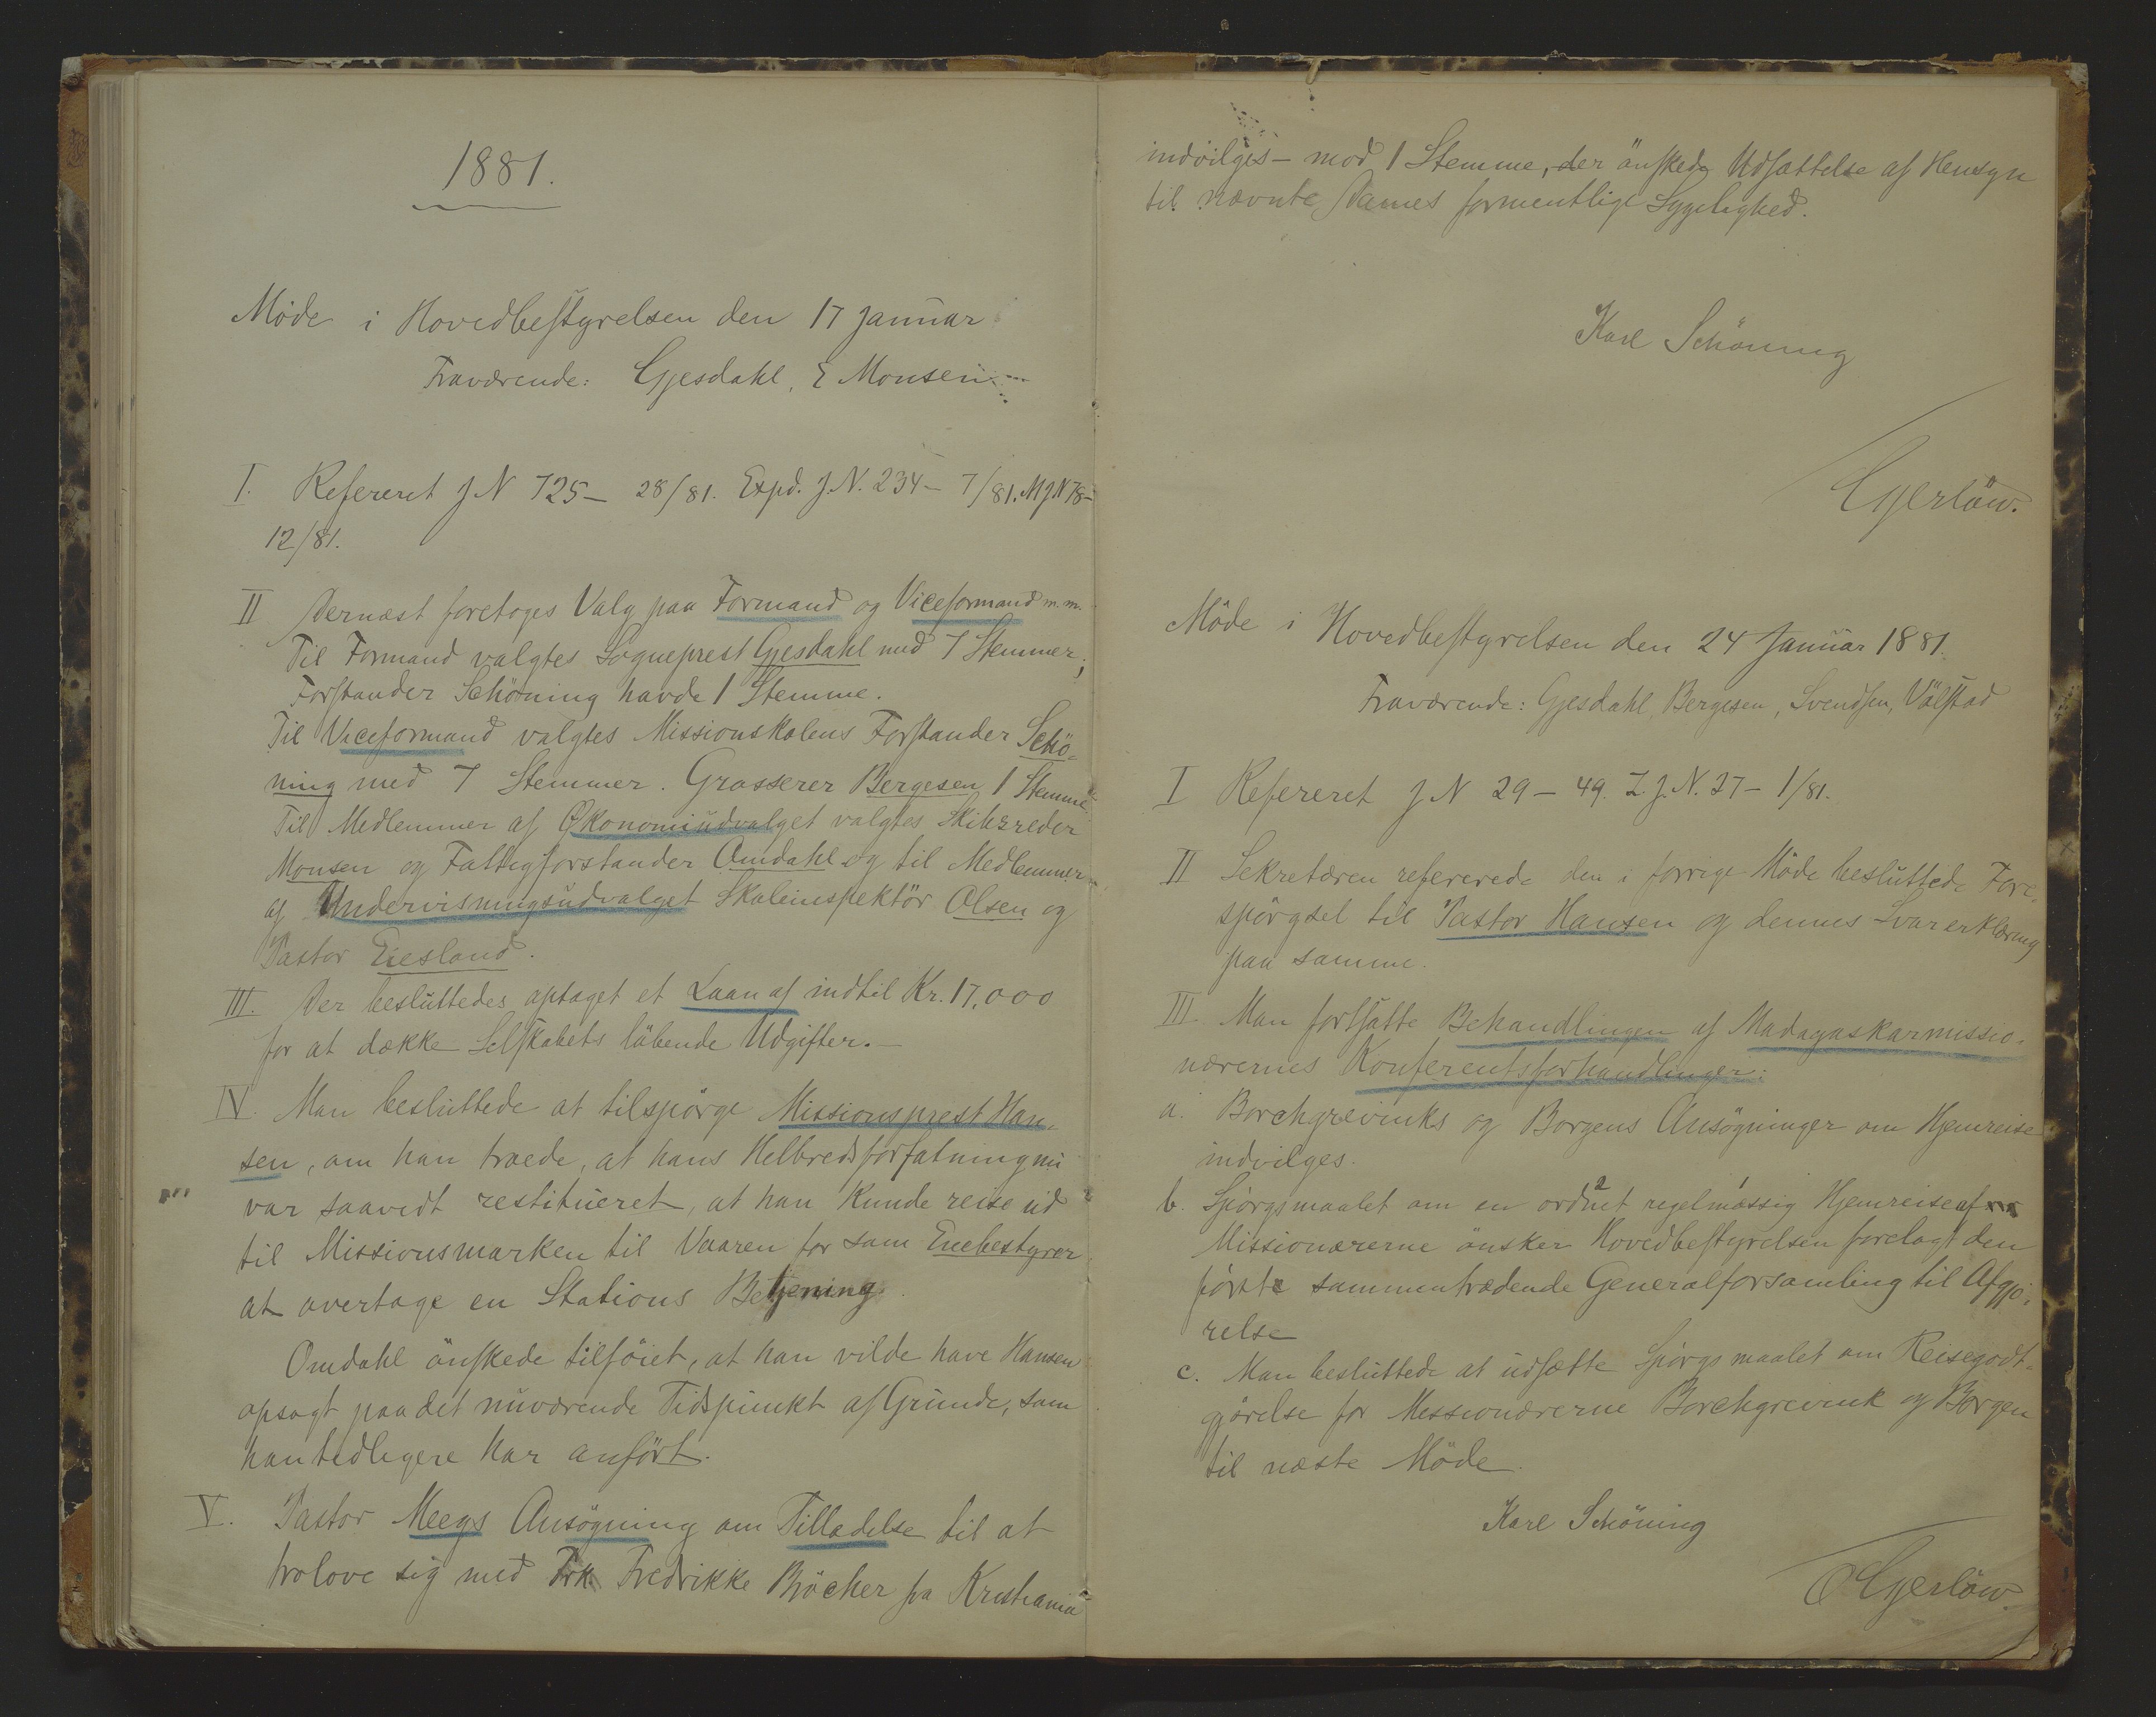 1881.
Möde i Hovedbestyrelsen den 17 Januar
Fraværende: Gjesdahl, E Monsen
I. Refereret J N 725 – 28/81. Expd. J. N. 234 – 7/81. M J N 78 –
12/81.
II Dernæst foretoges Valg paa Formand og Viceformand m. m.
Til Formand valgtes Sogneprest Gjesdahl med 7 Stemmer;
Forstander Schöning havde 1 Stemme.
Til Viceformand valgtes Missionskolens Forstander Schö-
ning med 7 Stemmer. Grosserer Bergesen 1 Stemme.
Til Medlemmer af Økonomiudvalget valgtes Skibsreder
Monsen og Fattigforstander Omdahl og til Medlemmer
af Undervisningsudvalget Skoleinspektör Olsen og
Pastor Eiesland.
III. Der besluttedes optaget et Laan af indtil Kr. 17,000
for at dække Selskabets löbende Udgifter. –
IV. Man besluttede at tilspörge Missionsprest Han-
sen, om han troede, at hans Helbredsforfatning nu
var saavidt restitueret, at han kunde reise ud
til Missionsmarken til Vaaren for som Enebestyrer
at overtage en Stations Betjening.
Omdahl önskede tilföiet, at han vilde have Hansen
opsagt paa det nuværende Tidspunkt af Grunde, som
han tidligere har anfört.
V. Pastor Meegs Ansögning om Tilladelse til at
trolove sig med Frk. Fredrikke Bröcher fra Kristiania
indvilges – mod 1 Stemme, der önskede Udsættelse af Hensyn
til nævnte Dames formentlige Sygelighed.
Karl Schöning
Gjerlöw.
Möde i Hovedbestyrelsen den 24 Januar 1881.
Fraværende: Gjesdahl, Bergesen, Svendsen, Völstad
I Refereret J N 29 – 49. Z. J. N. 37 – 1/81.
II Sekretæren refererede den i forrige Möde besluttede Fore-
spörgsel til Pastor Hansen og dennes Svarerklæring
paa samme.
III. Man fortsatte Behandlingen af Madagaskarmissio-
nærernes Konferentsforhandlinger:
a. Borchgrevinks og Borgens Ansögninger om Hjemreise
indvilges.
b. Spörgsmaalet om en ordnet regelmæssig Hjemreise af
Missionærerne önsker Hovedbestyrelsen forelagt den
förste sammentrædende Generalforsamling til Afgjö-
relse
c. Man besluttede at udsætte Spörgsmaalet om Reisegodt-
gjörelse for Missionærerne Borchgrevink og Borgen
til næste Möde.
Karl Schöning
O Gjerlöw.